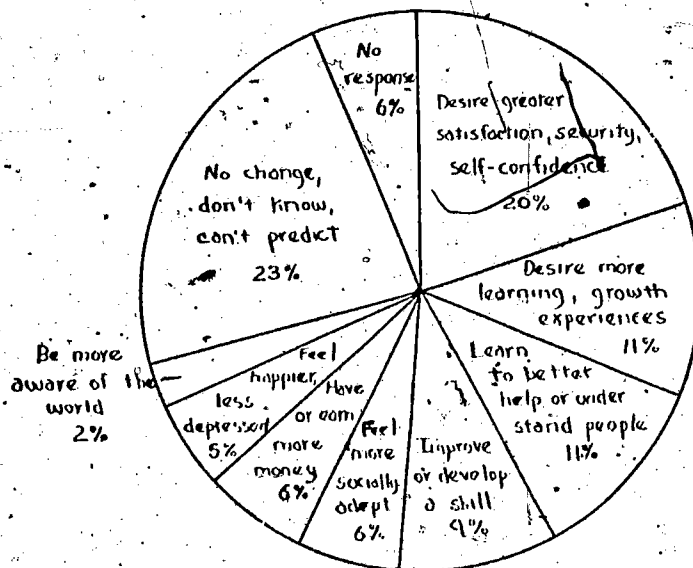 No
response
6%
Desire greater
satisfaction, security,
self-confidence
20%
Desire more
learning, growth
experiences
11%
Learn
to better
help or under
stand people
11%
Improve
or develop
a skill
9%
Feel
more
socially
adept
6%
Have
or earn
more
money
6%
Feel
happier,
less
depressed
5%
Be more
aware of the
world
2%
No change,
don't know,
can't predict
23%